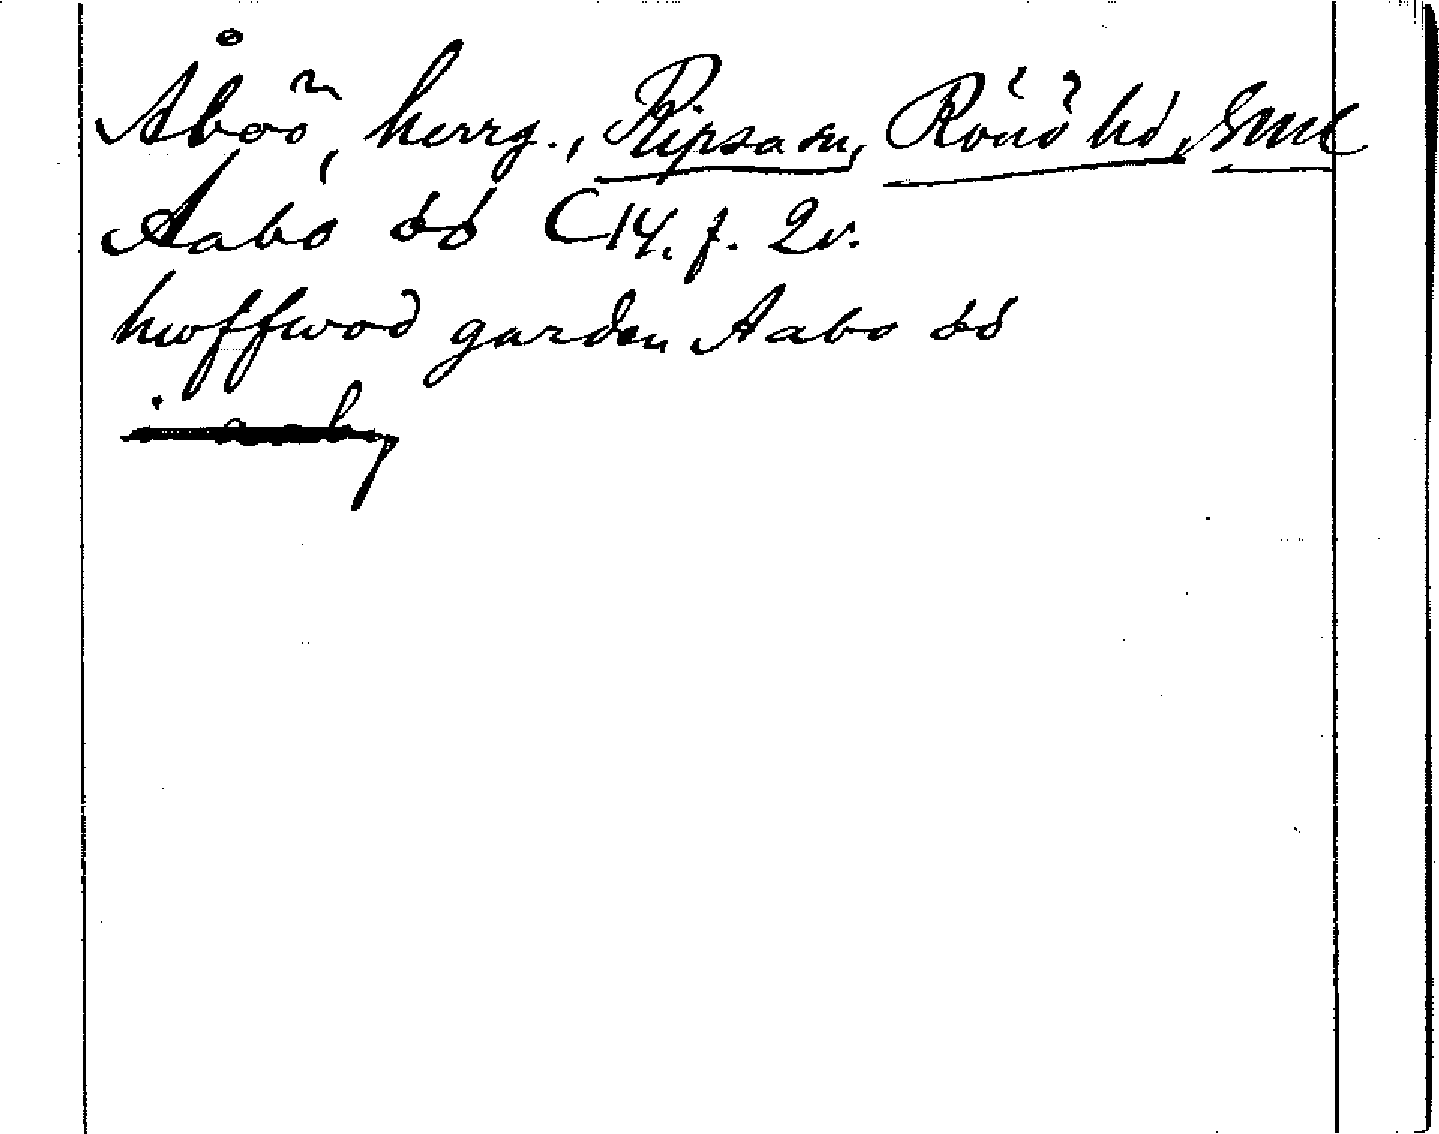 Åboö, herrg., Ripsa sn, Rönö hd, Sml
Aabo öö C14. f. 2v.
hwffwod garden Aabo öö